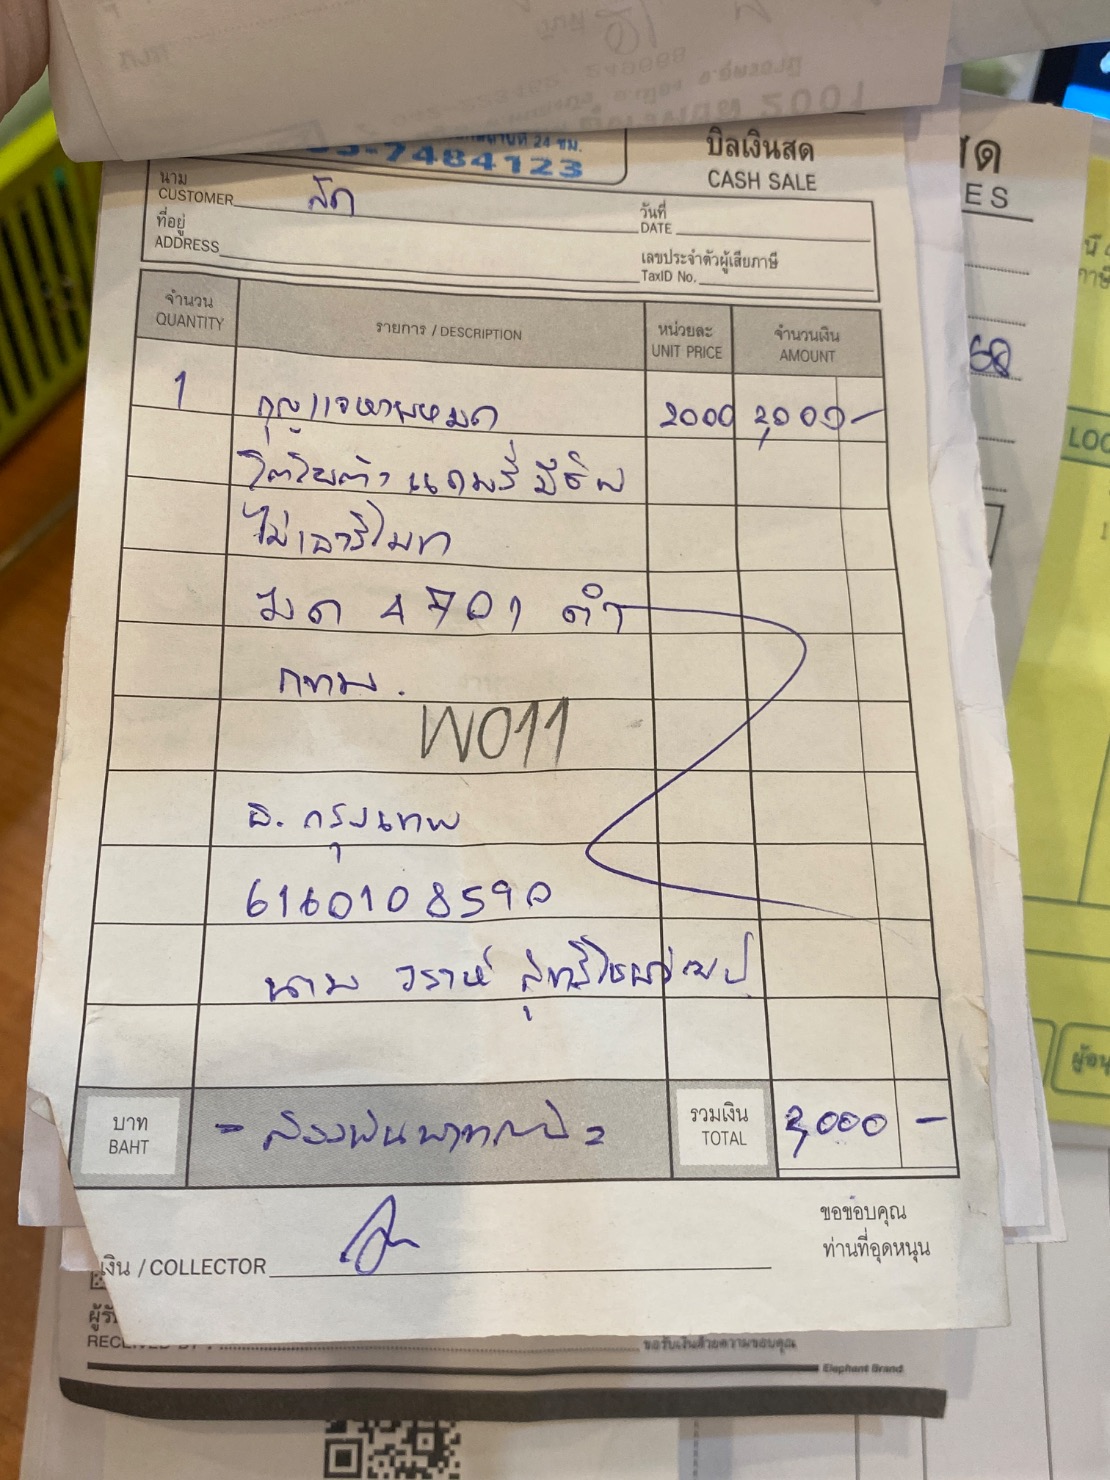 24 ชม.
-7484123
บิลเงินสด
CASH SALE
สด
ES
นาม
CUSTOMER สด
วันที่
DATE
ที่อยู่
ADDRESS
เลขประจำตัวผู้เสียภาษี
TaxID No.
จำนวน
QUANTITY
รายการ / DESCRIPTION
หน่วยละ
UNIT PRICE
จำนวนเงิน
AMOUNT
1 กุญแจหายหมด 2000 2,000 -
โตโยต้า แคมรี่ มีชิพ
ไม่เอารีโมท
4701 ดำ
กทม.
W011
ธ. กรุงเทพ
6160108590
นาม วราห์
บาท
BAHT
- สองพันบาทถ้วน =
รวมเงิน
TOTAL
2,000 -
เงิน / COLLECTOR
ขอขอบคุณ
ท่านที่อุดหนุน
68
LOC
ขอรับเงินด้วยความขอบคุณ
Elephant Brand